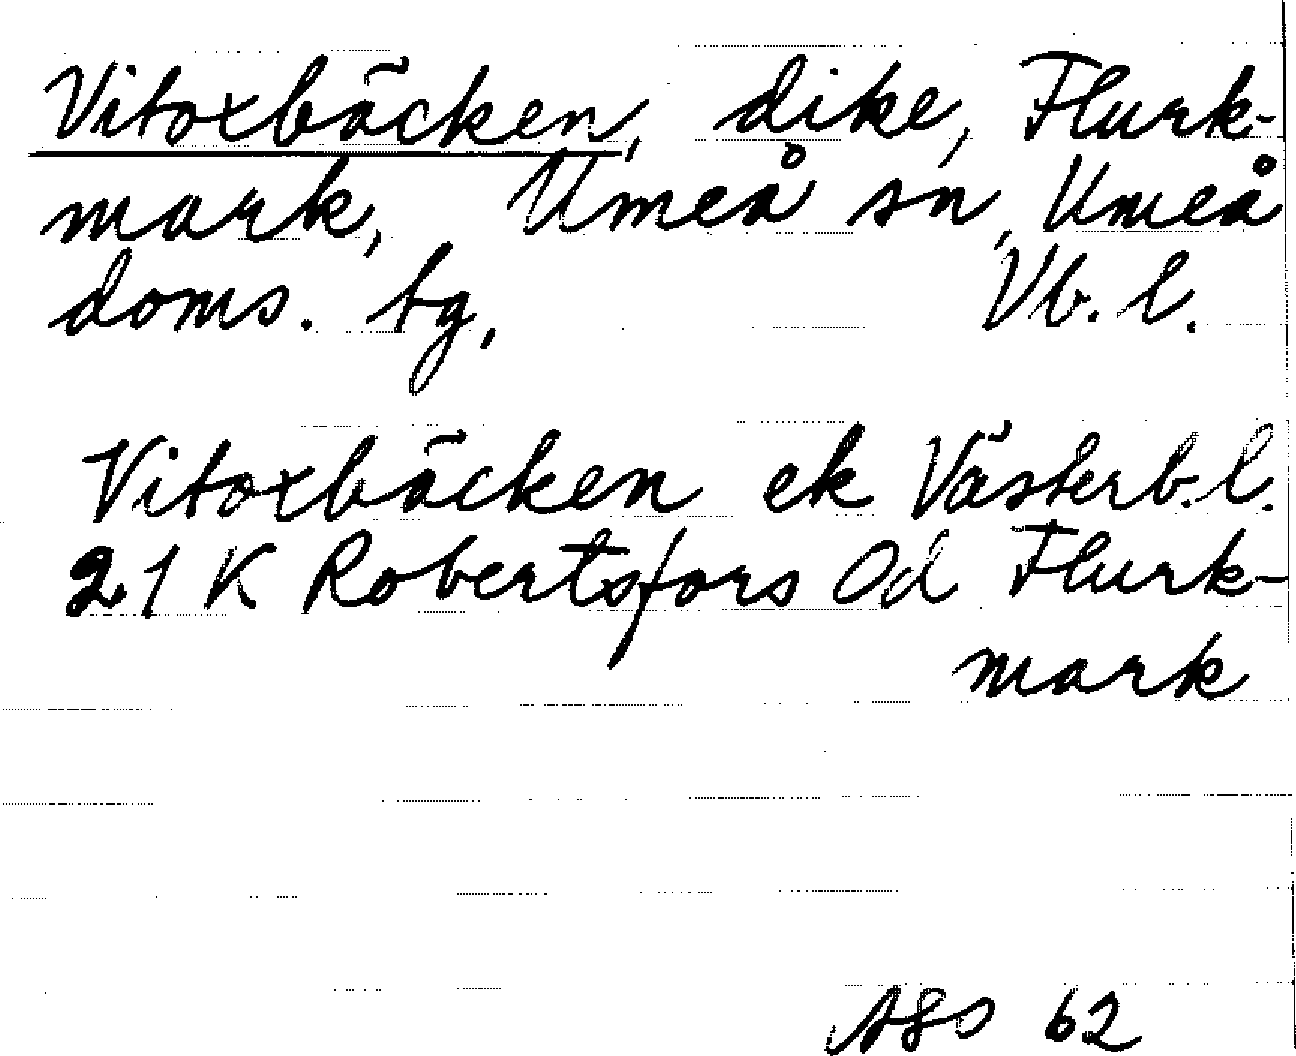 Vitoxbäcken, dike, Flurk-
mark, Umeå sn, Umeå
doms. tg, Vb. l.
Vitoxbäcken ek Västerb. l.
21 K Robertsfors Od Flurk-
mark
62